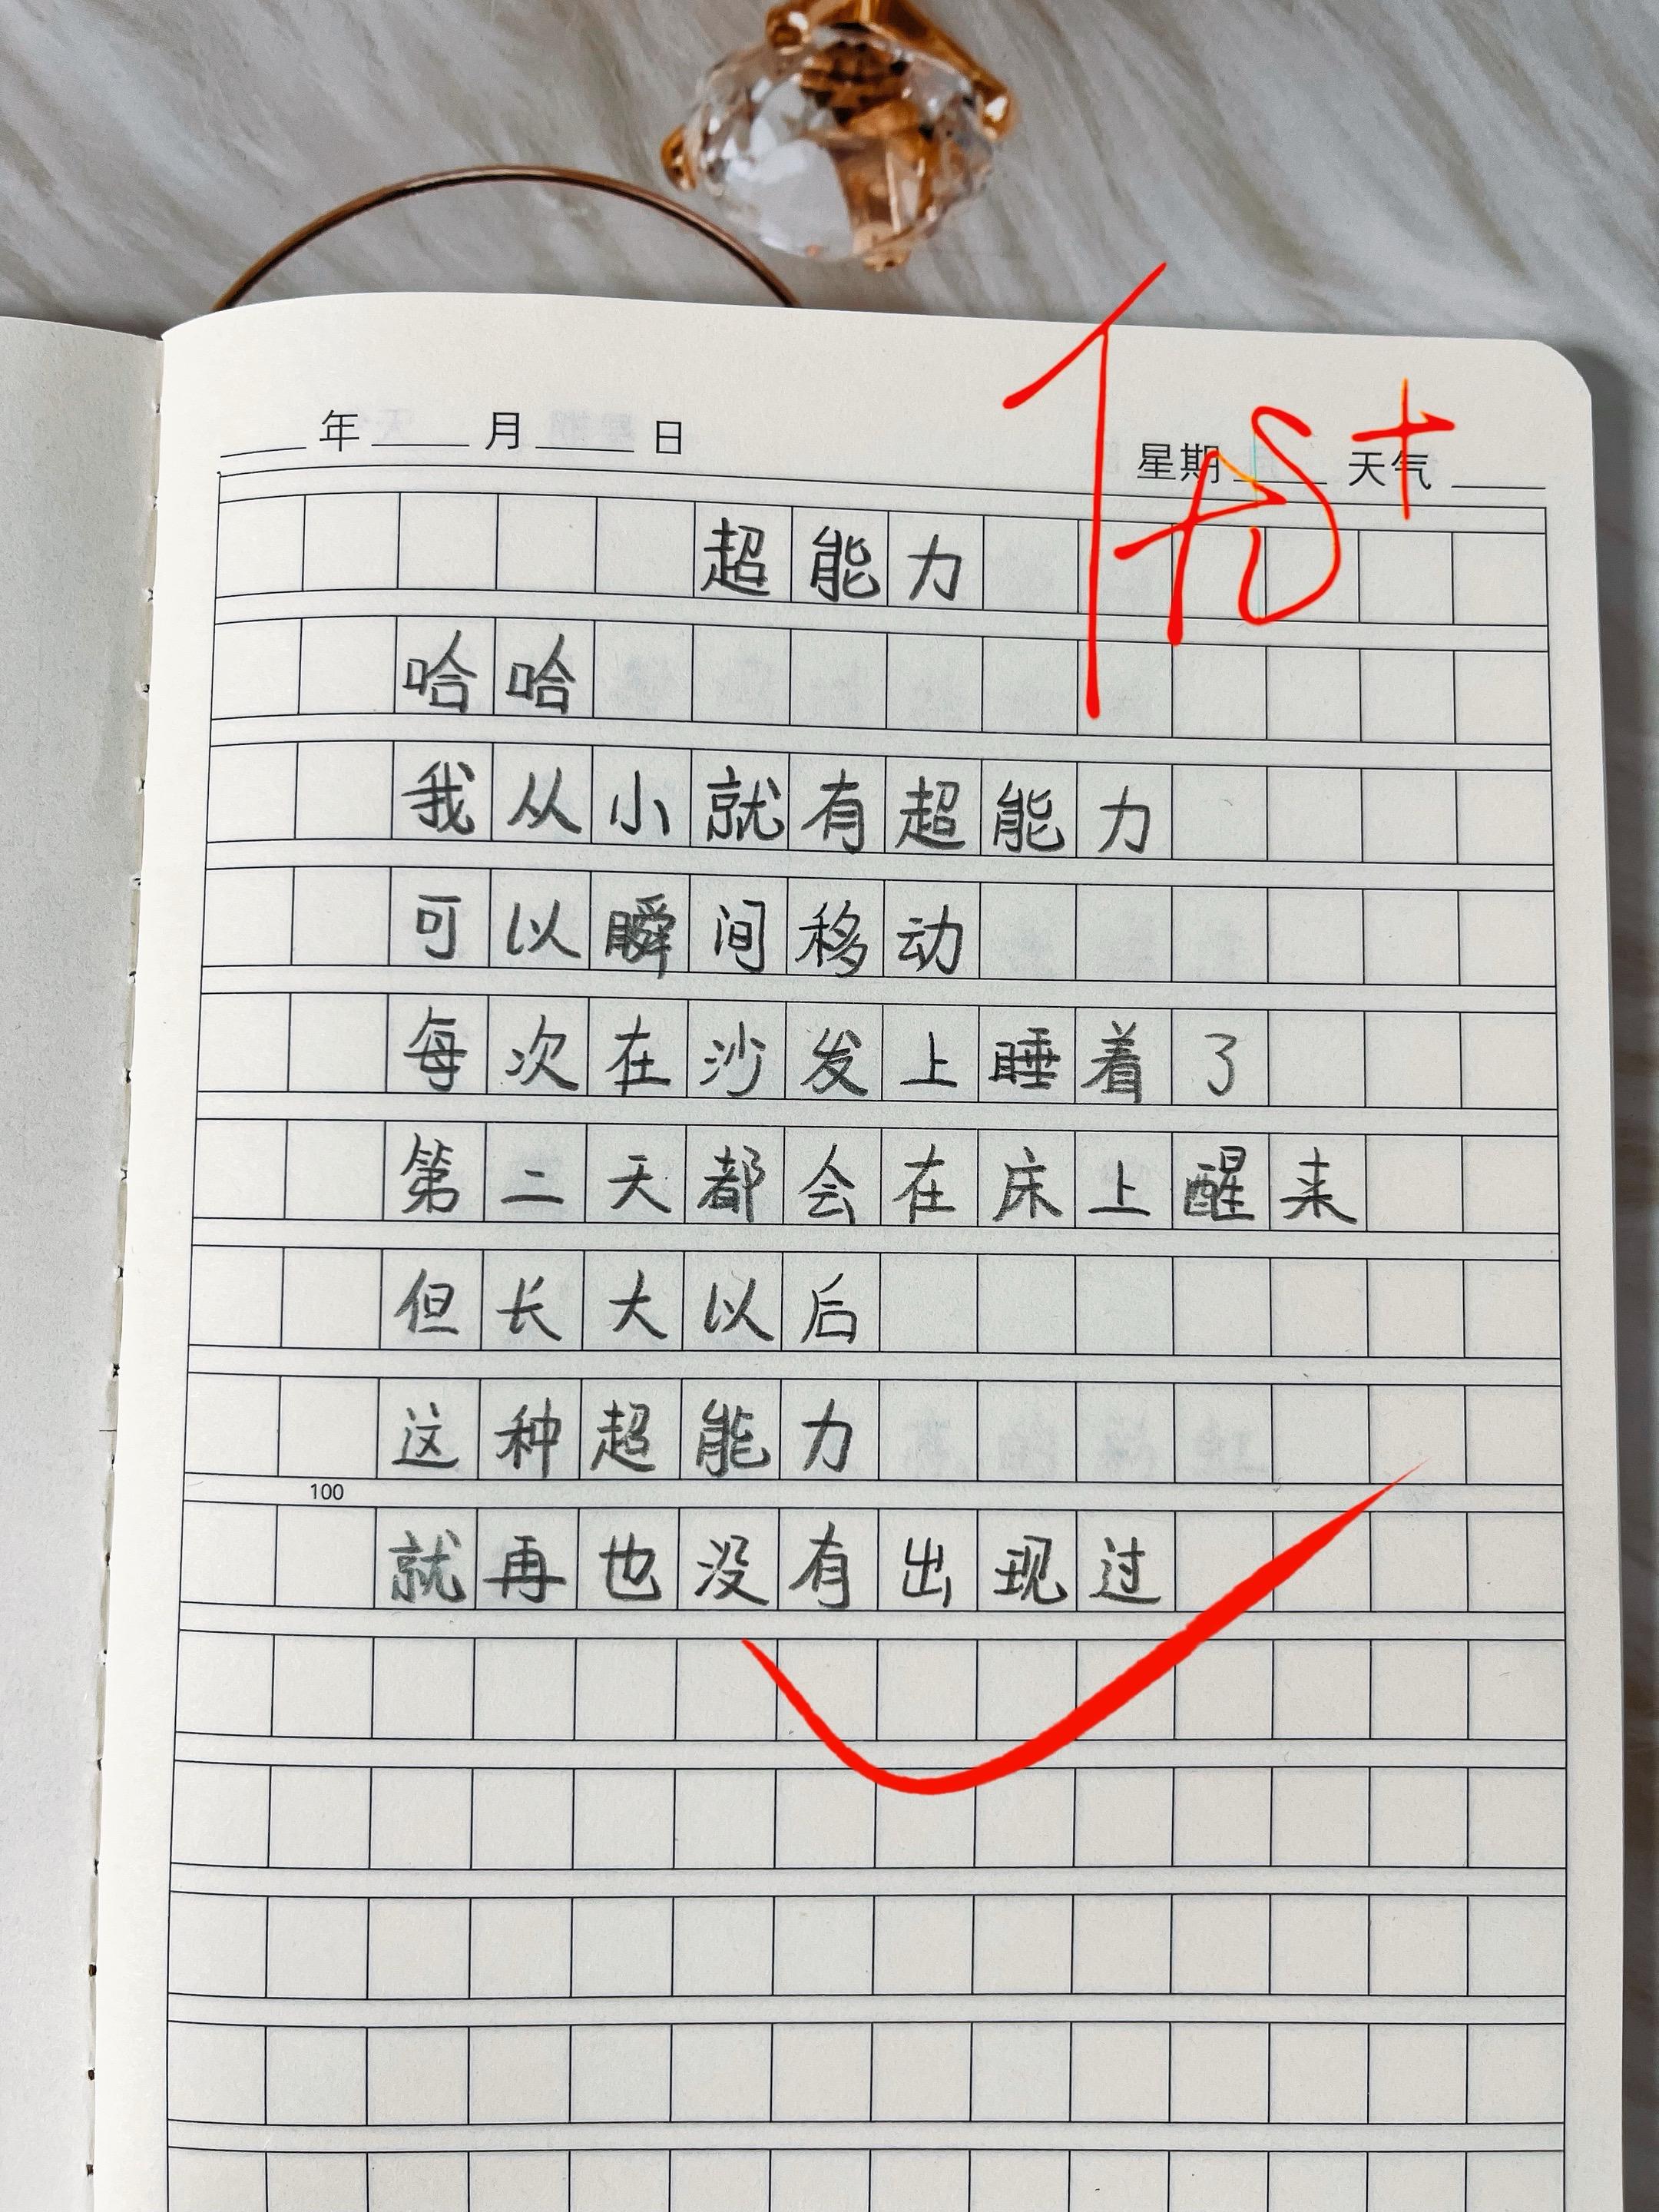 年 月 日 星期 天气
超能力
哈哈
我从小就有超能力
可以瞬间移动
每次在沙发上睡着了
第二天都会在床上醒来
但长大以后
这种超能力
100
就再也没有出现过